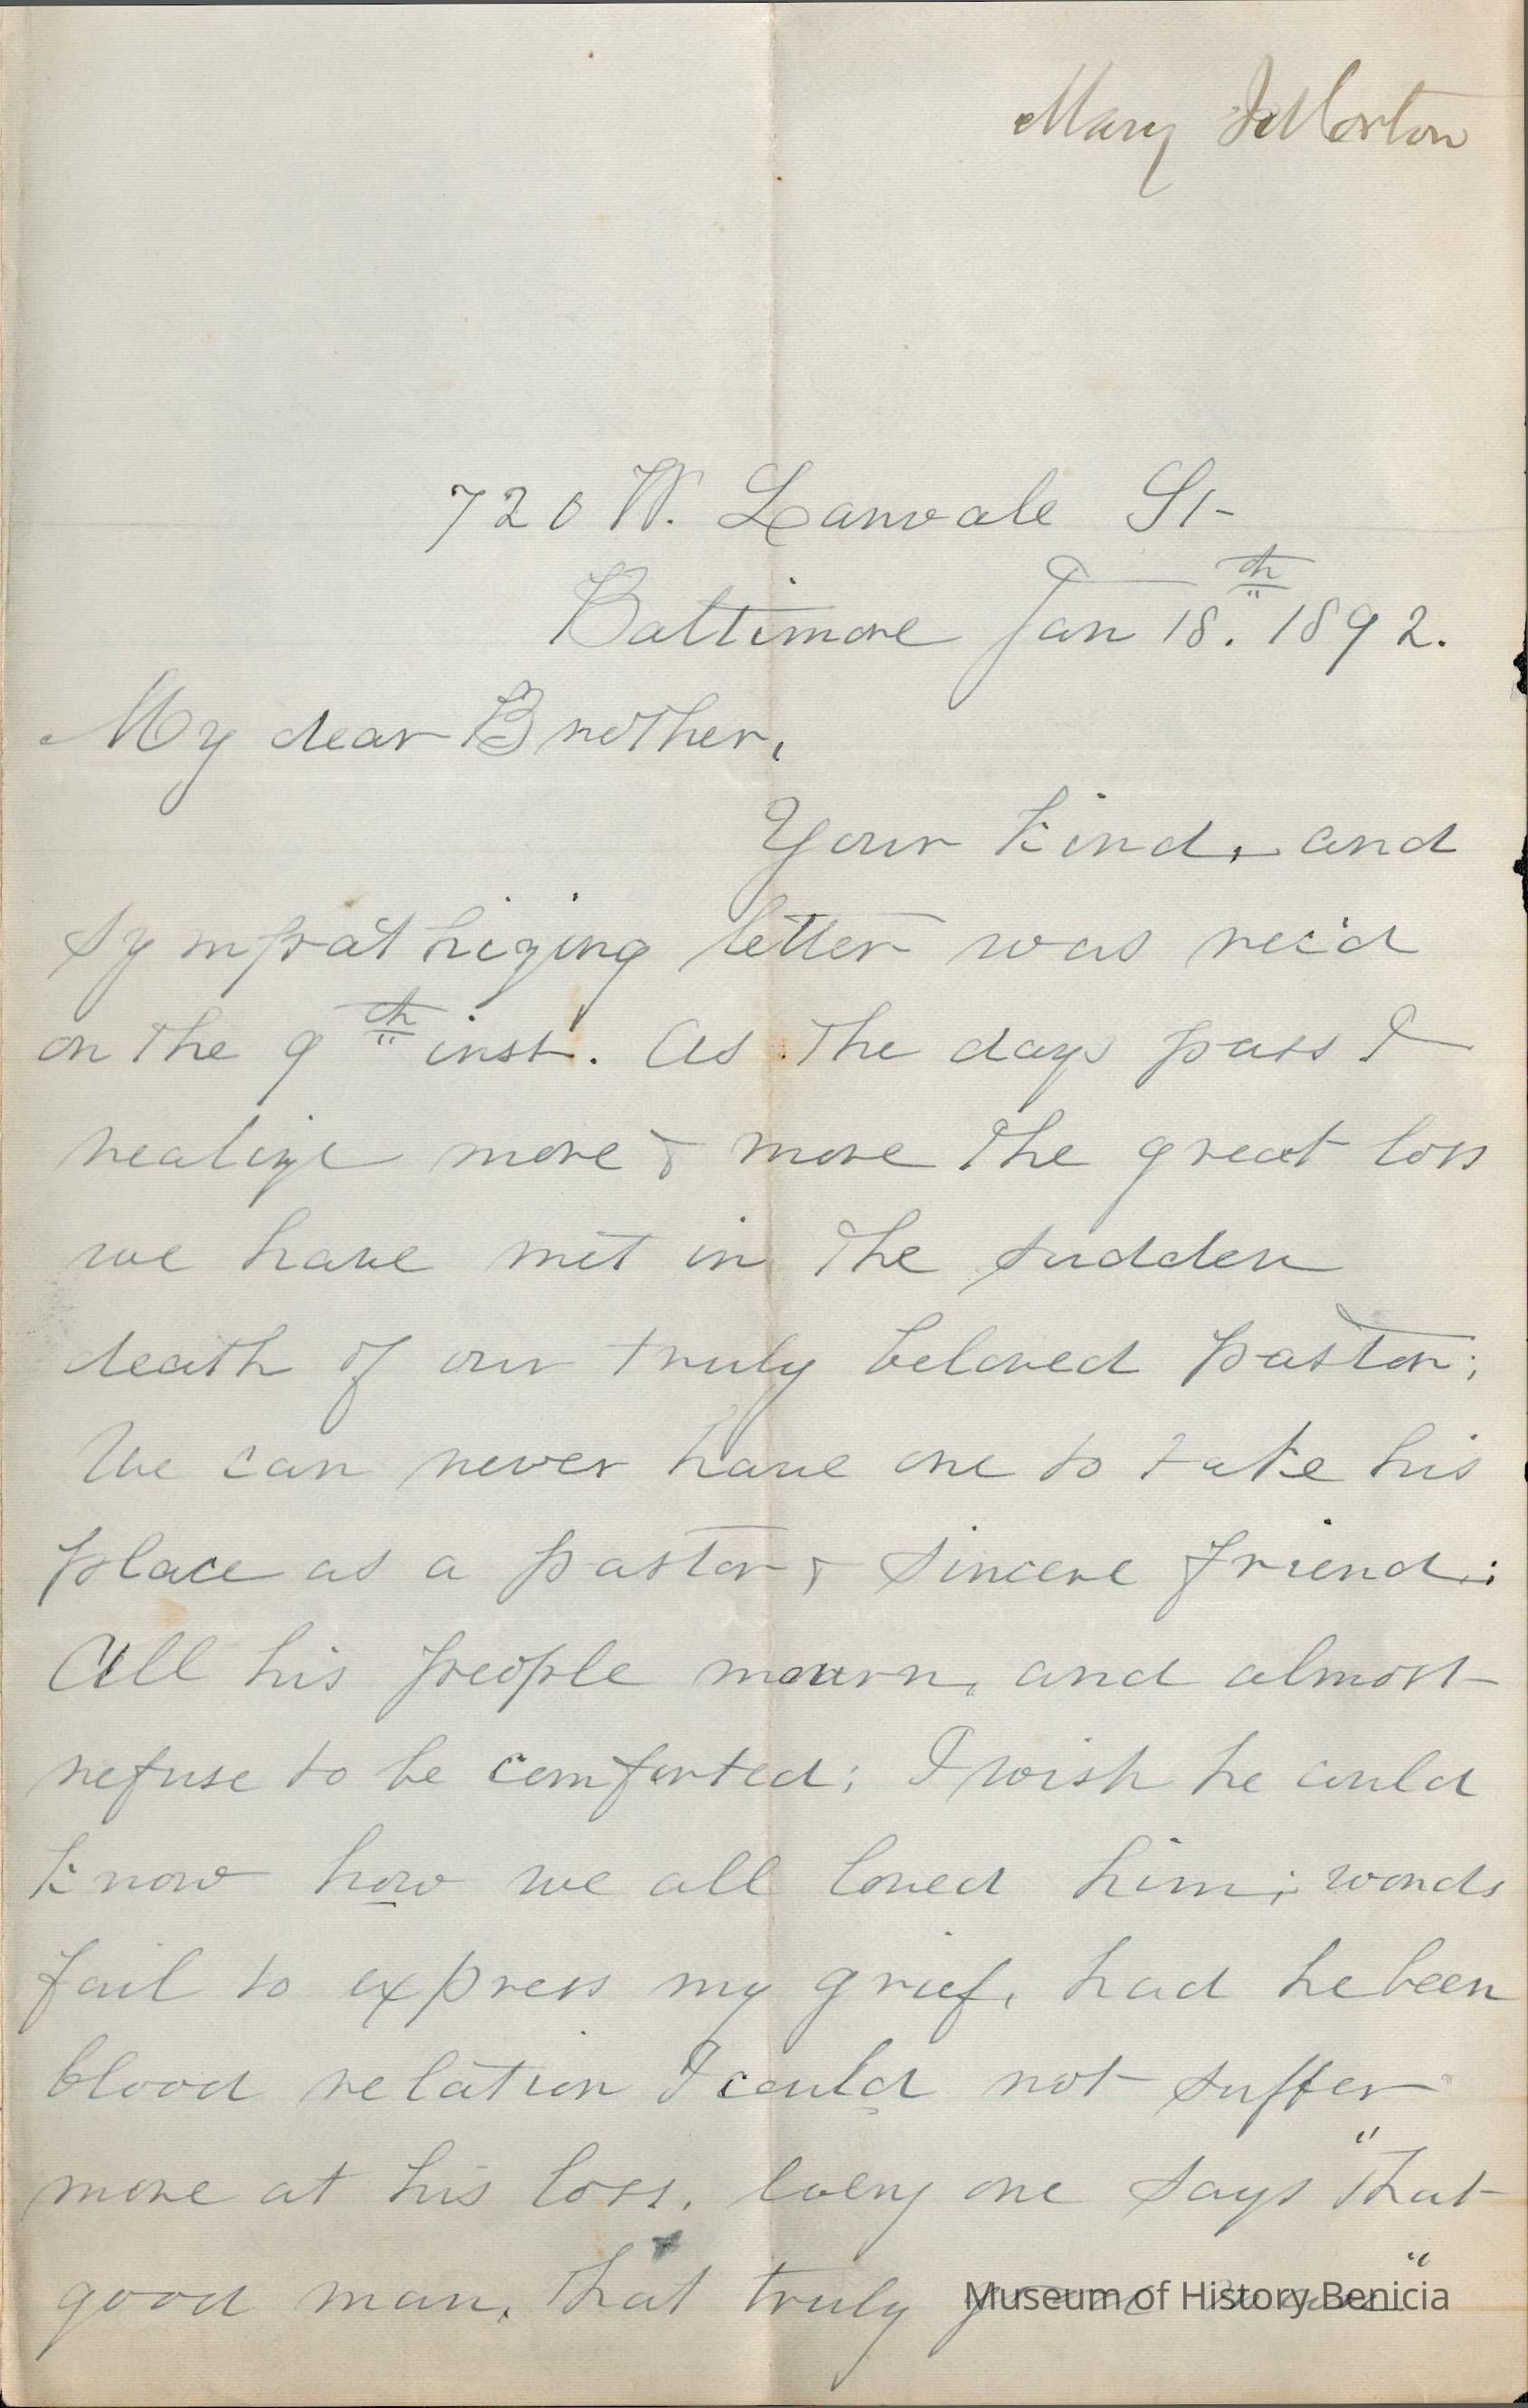 Mary
720 W. Lanvale St
Baltimore Jan 18.th 1892.
My dear Brother,
Your kind, and
sympathizing letter was rec'd
on the 9th inst. As the days pass I
realize more & more the great loss
we have met in the sudden
death of our truly beloved pastor;
We can never have one to take his
place as a pastor & sincere friend;
All his people mourn, and almost
refuse to be comforted; I wish he could
know how we all loved him; words
fail to express my grief, had he been
blood relation I could not suffer
more at his loss. Every one says "that
good man, that truly
Museum of History Benicia